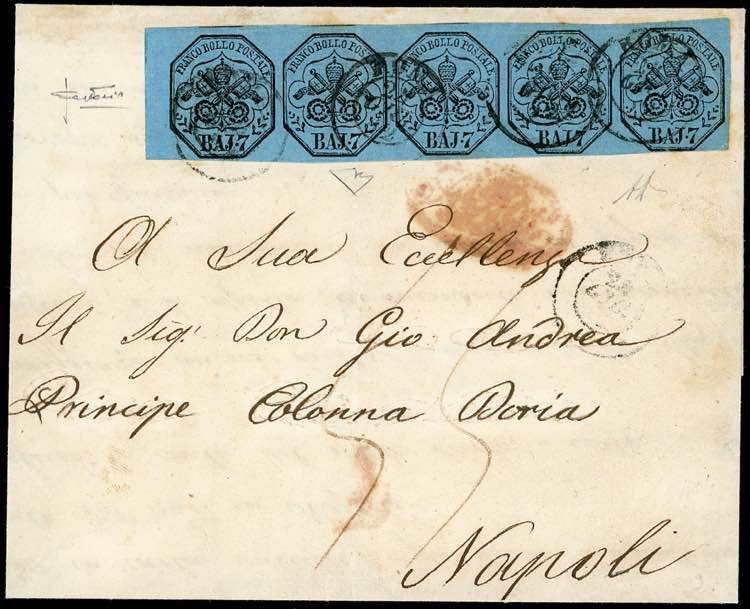 FRANCO BOLLO POSTALE FRANCO BOLLO POSTALE FRANCO BOLLO POSTALE FRANCO BOLLO POSTALE FRANCO BOLLO POSTALE
BAJ·7 BAJ·7 BAJ·7 BAJ·7 BAJ·7
A Sua Eccellenza
Il Sig: Don Gio Andrea
Principe Colonna Doria
Napoli